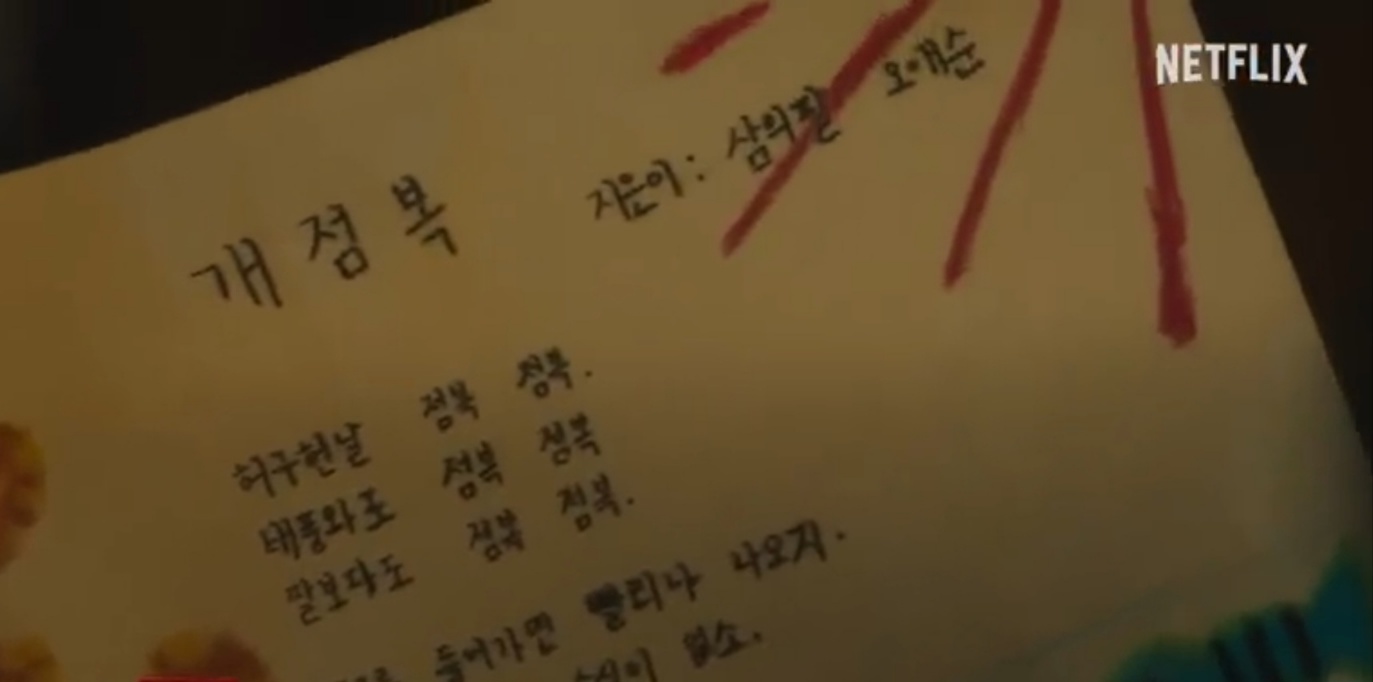 NETFLIX
개점복
지은이: 삼의필 오애순
허구헌날 점복 점복.
태풍와도 점복 점복
딸보다도 점복 점복.
들어가면 빨리나 나오지.
없소.